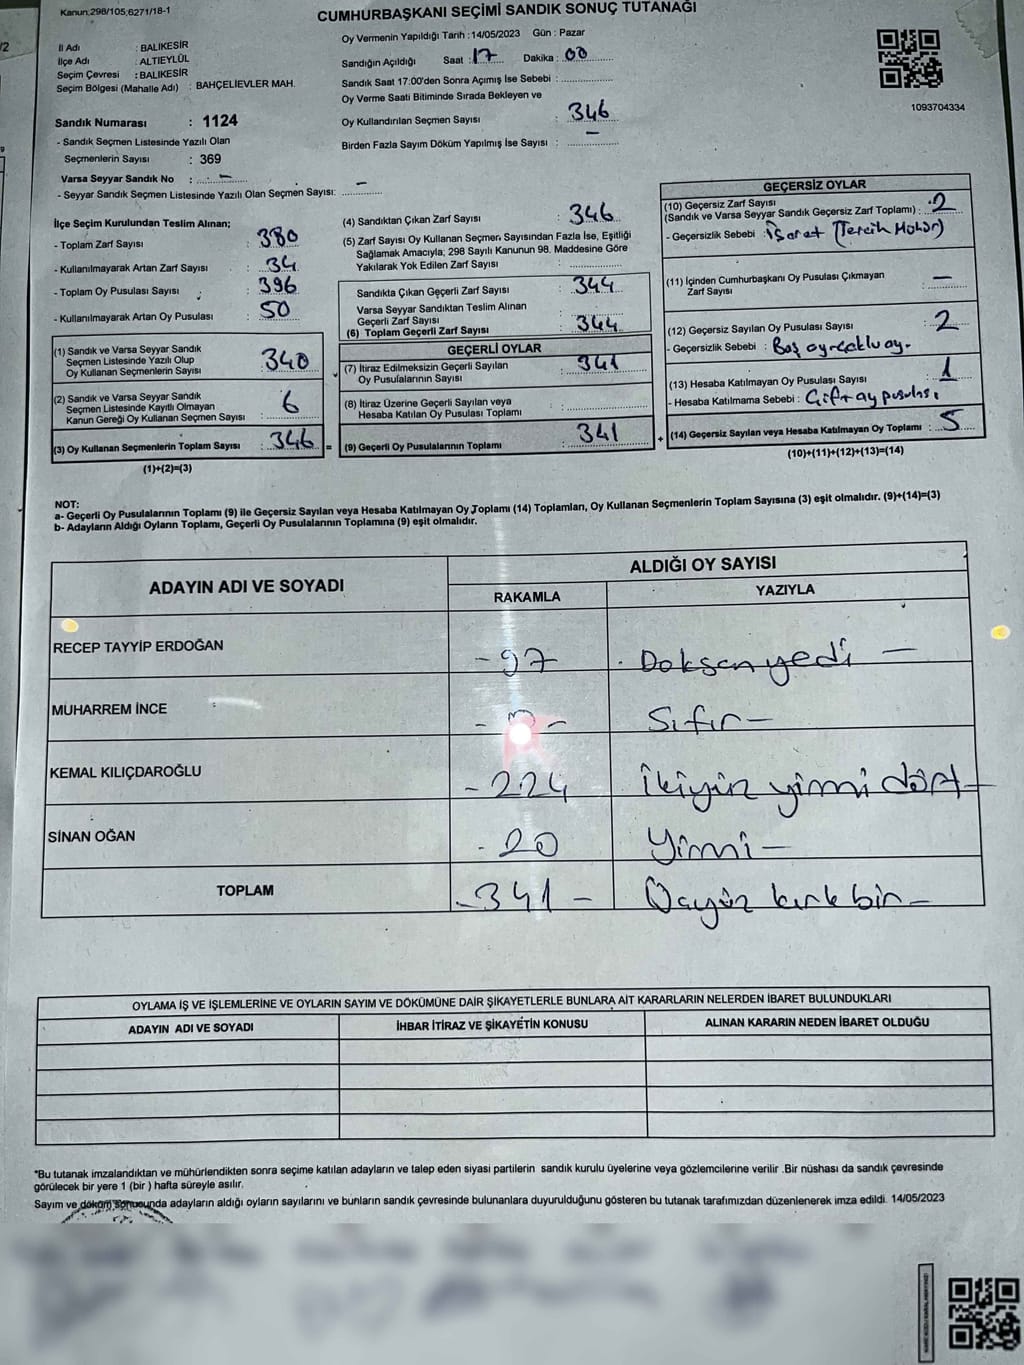 Kanun:298/105,6271/18-1
CUMHURBAŞKANI SEÇİMİ SANDIK SONUÇ TUTANAĞI
İl Adı : BALIKESİR
İlçe Adı : ALTIEYLÜL
Seçim Çevresi : BALIKESİR
Seçim Bölgesi (Mahalle Adı) : BAHÇELİEVLER MAH.
Sandık Numarası : 1124
- Sandık Seçmen Listesinde Yazılı Olan
Seçmenlerin Sayısı : 369
Varsa Seyyar Sandık No : -
- Seyyar Sandık Seçmen Listesinde Yazılı Olan Seçmen Sayısı: -
Oy Vermenin Yapıldığı Tarih :14/05/2023 Gün : Pazar
Sandığın Açıldığı Saat : 17 Dakika : 00
Sandık Saat 17:00'den Sonra Açımış İse Sebebi :
Oy Verme Saati Bitiminde Sırada Bekleyen ve
Oy Kullandırılan Seçmen Sayısı : 346
Birden Fazla Sayım Döküm Yapılmış İse Sayısı : -
1093704334
İlçe Seçim Kurulundan Teslim Alınan;
- Toplam Zarf Sayısı : 380
- Kullanılmayarak Artan Zarf Sayısı : 34
- Toplam Oy Pusulası Sayısı : 396
- Kullanılmayarak Artan Oy Pusulası : 50
(1) Sandık ve Varsa Seyyar Sandık
Seçmen Listesinde Yazılı Olup
Oy Kullanan Seçmenlerin Sayısı : 340
(2) Sandık ve Varsa Seyyar Sandık
Seçmen Listesinde Kayıtlı Olmayan
Kanun Gereği Oy Kullanan Seçmen Sayısı : 6
(3) Oy Kullanan Seçmenlerin Toplam Sayısı : 346 =
(1)+(2)=(3)
(4) Sandıktan Çıkan Zarf Sayısı : 346
(5) Zarf Sayısı Oy Kullanan Seçmen Sayısından Fazla İse, Eşitliği
Sağlamak Amacıyla; 298 Sayılı Kanunun 98. Maddesine Göre
Yakılarak Yok Edilen Zarf Sayısı :
Sandıkta Çıkan Geçerli Zarf Sayısı : 344
Varsa Seyyar Sandıktan Teslim Alınan
Geçerli Zarf Sayısı
(6) Toplam Geçerli Zarf Sayısı : 344
GEÇERLİ OYLAR
(7) İtiraz Edilmeksizin Geçerli Sayılan
Oy Pusulalarının Sayısı : 341
(8) İtiraz Üzerine Geçerli Sayılan veya
Hesaba Katılan Oy Pusulası Toplamı :
(9) Geçerli Oy Pusulalarının Toplamı : 341 +
GEÇERSİZ OYLAR
(10) Geçersiz Zarf Sayısı
(Sandık ve Varsa Seyyar Sandık Geçersiz Zarf Toplamı) : 2
- Geçersizlik Sebebi : İşaret (Tercih Mührü)
(11) İçinden Cumhurbaşkanı Oy Pusulası Çıkmayan
Zarf Sayısı : -
(12) Geçersiz Sayılan Oy Pusulası Sayısı : 2
- Geçersizlik Sebebi : Boş
(13) Hesaba Katılmayan Oy Pusulası Sayısı : 1
- Hesaba Katılmama Sebebi : Çift oy pusulası
(14) Geçersiz Sayılan veya Hesaba Katılmayan Oy Toplamı : 5
(10)+(11)+(12)+(13)=(14)
NOT:
a- Geçerli Oy Pusulalarının Toplamı (9) ile Geçersiz Sayılan veya Hesaba Katılmayan Oy Toplamı (14) Toplamları, Oy Kullanan Seçmenlerin Toplam Sayısına (3) eşit olmalıdır. (9)+(14)=(3)
b- Adayların Aldığı Oyların Toplamı, Geçerli Oy Pusulalarının Toplamına (9) eşit olmalıdır.
ADAYIN ADI VE SOYADI
ALDIĞI OY SAYISI
RAKAMLA YAZIYLA
RECEP TAYYİP ERDOĞAN -97 Doksanyedi -
MUHARREM İNCE -0- Sıfır -
KEMAL KILIÇDAROĞLU -224 İkiyüz yirmi dört -
SİNAN OĞAN -20 Yirmi -
TOPLAM -341- Üçyüz kırk bir -
OYLAMA İŞ VE İŞLEMLERİNE VE OYLARIN SAYIM VE DÖKÜMÜNE DAİR ŞİKAYETLERLE BUNLARA AİT KARARLARIN NELERDEN İBARET BULUNDUKLARI
ADAYIN ADI VE SOYADI İHBAR İTİRAZ VE ŞİKAYETİN KONUSU ALINAN KARARIN NEDEN İBARET OLDUĞU
*Bu tutanak imzalandıktan ve mühürlendikten sonra seçime katılan adayların ve talep eden siyasi partilerin sandık kurulu üyelerine veya gözlemcilerine verilir .Bir nüshası da sandık çevresinde
görülecek bir yere 1 (bir ) hafta süreyle asılır.
Sayım ve döküm sonucunda adayların aldığı oyların sayılarını ve bunların sandık çevresinde bulunanlara duyurulduğunu gösteren bu tutanak tarafımızdan düzenlenerek imza edildi. 14/05/2023